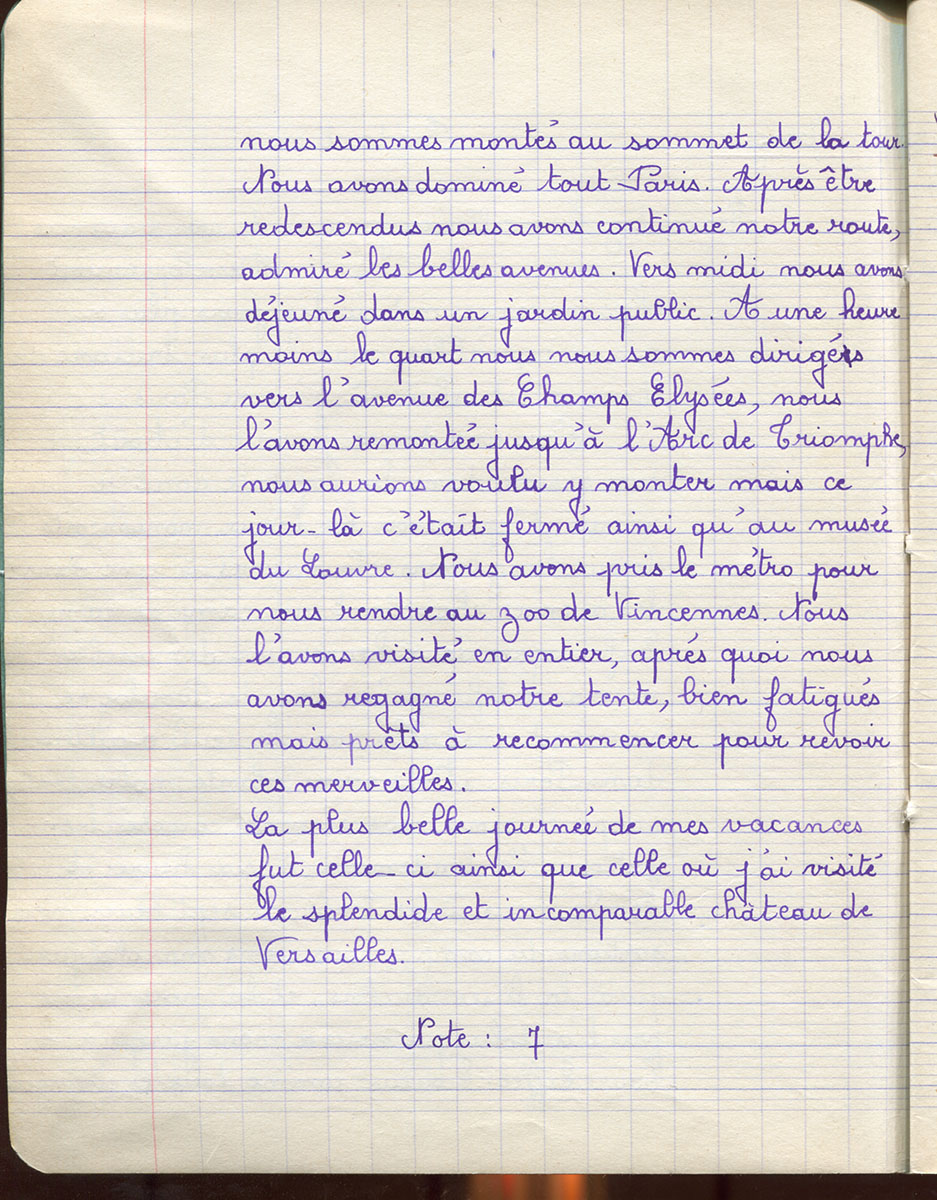 nous sommes montés au sommet de la tour.
Nous avons dominé tout Paris. Après être
redescendus nous avons continué notre route,
admiré les belles avenues. Vers midi nous avons
déjeuné dans un jardin public. A une heure
moins le quart nous nous sommes dirigés
vers l'avenue des Champs Elysées, nous
l'avons remontée jusqu'à l'Arc de Triomphe,
nous aurions voulu y monter mais ce
jour-là c'était fermé ainsi qu'au musée
du Louvre. Nous avons pris le métro pour
nous rendre au zoo de Vincennes. Nous
l'avons visité en entier, aprés quoi nous
avons regagné notre tente, bien fatigués
mais prêts à recommencer pour revoir
ces merveilles.
La plus belle journeé de mes vacances
fut celle-ci ainsi que celle où j'ai visité
le splendide et incomparable château de
Versailles.
Note : 7